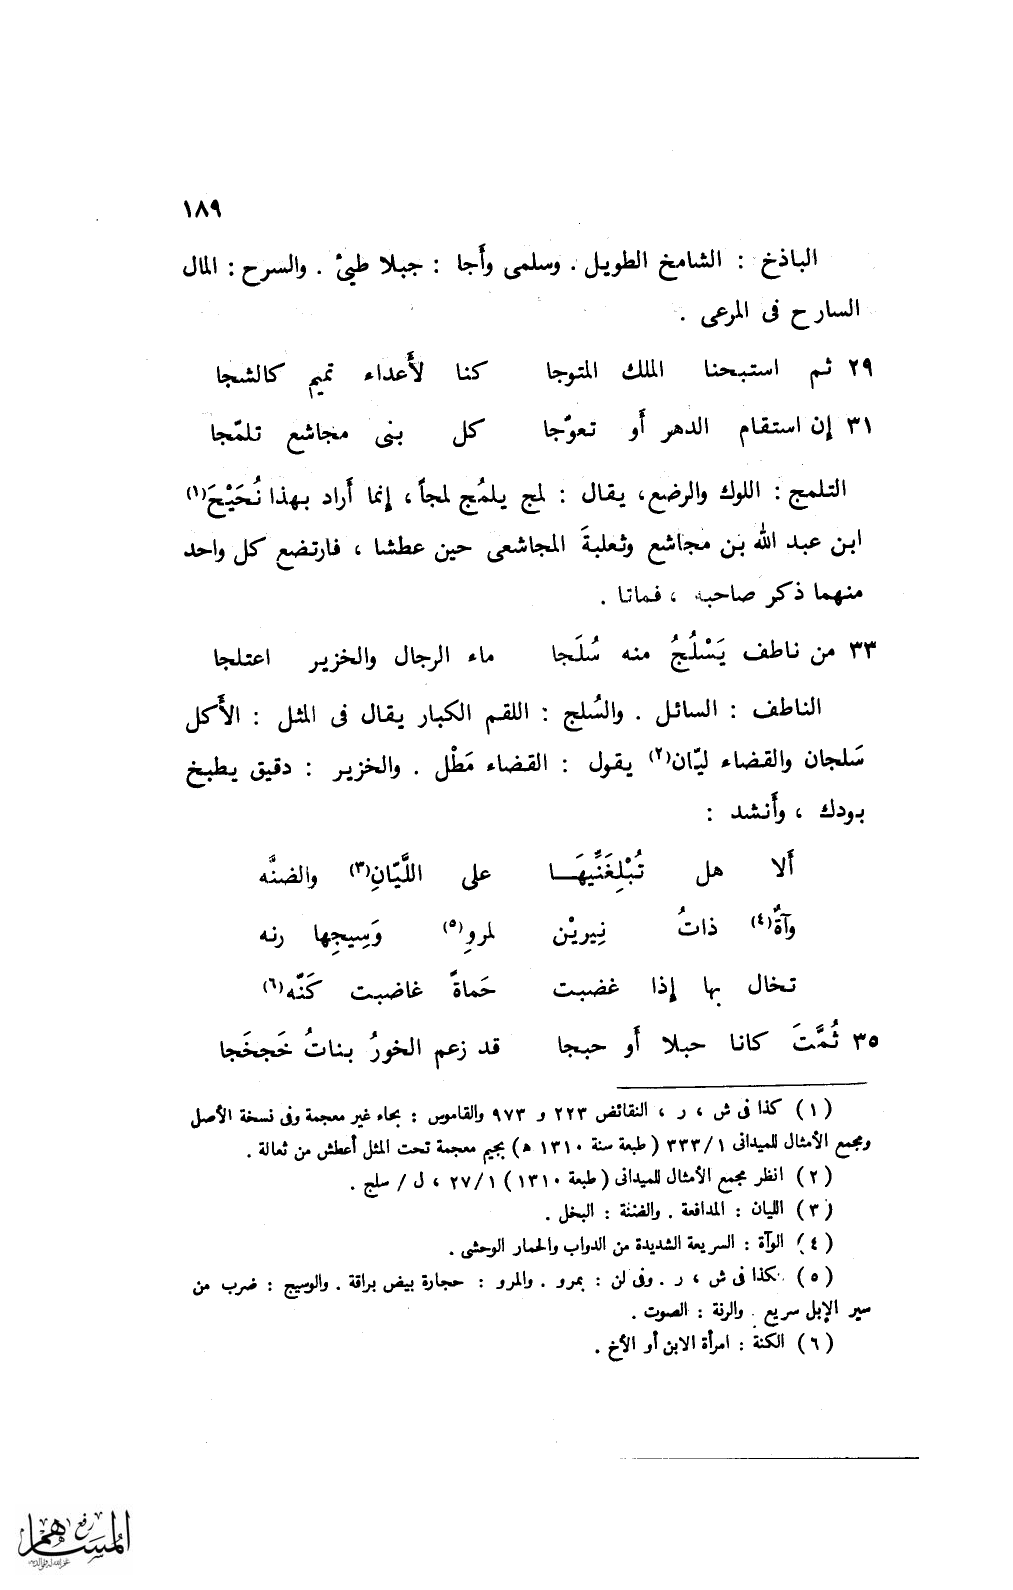 ١٨٩
الباذخ : الشامخ الطويل . وسلمى وأَجا : جبلا طيئ . والسرح : المال
السارح فى المرعى .
٢٩ ثم استبحنا الملك المتوجا كنا لأَعداء تميم كالشجا
٣١ إن استقام الدهر أَو تعوّجا كل بنى مجاشع تلمّجا
التلمج : اللوك والرضع، يقال : لمج يلمُج لمجاً ، إنما أَراد بهذا نُحَيْحَ(١)
ابن عبد الله بن مجاشع وثعلبةَ المجاشعى حين عطشا ، فارتضع كل واحد
منهما ذكر صاحبه ، فماتا .
٣٣ من ناطف يَسْلُجُ منه سُلَجا ماء الرجال والخزير اعتلجا
الناطف : السائل . والسُلج : اللقم الكبار يقال فى المثل : الأَكل
سَلجان والقضاء ليّان(٢) يقول : القضاء مَطْل . والخزير : دقيق يطبخ
بودك ، وأَنشد :
أَلا هل تُبْلِغَنِّيهَـــا على اللَّيّانِ(٣) والضنَّه
وآةٌ(٤) ذاتُ نِيريْن لمروِ(٥) وَسِيجِها رنه
تخال بها إذا غضبت حَماةً غاضبت كَنّه(٦)
٣٥ ثُمَّتَ كانا حبلا أَو حبجا قد زعم الخورُ بناتُ خَجخَجا
(١) كذا فى ش ، ر ، النقائض ٢٢٣ و ٩٧٣ والقاموس : بحاء غير معجمة وفى نسخة الأصل
ومجمع الأمثال للميدانى ٣٣٣/١ (طبعة سنة ١٣١٠ ه) بجيم معجمة تحت المثل أعطش من ثعالة .
(٢) انظر مجمع الأمثال للميدانى (طبعة ١٣١٠) ٢٧/١ ، ل / سلج .
(٣) الليان : المدافعة . والضنة : البخل .
(٤) الوآة : السريعة الشديدة من الدواب والحمار الوحشى .
(٥) كذا فى ش ، ر . وفى لن : بمرو . والمرو : حجارة بيض براقة . والوسيج : ضرب من
سير الإبل سريع . والرنة : الصوت .
(٦) الكنة : امرأة الابن أو الأخ .